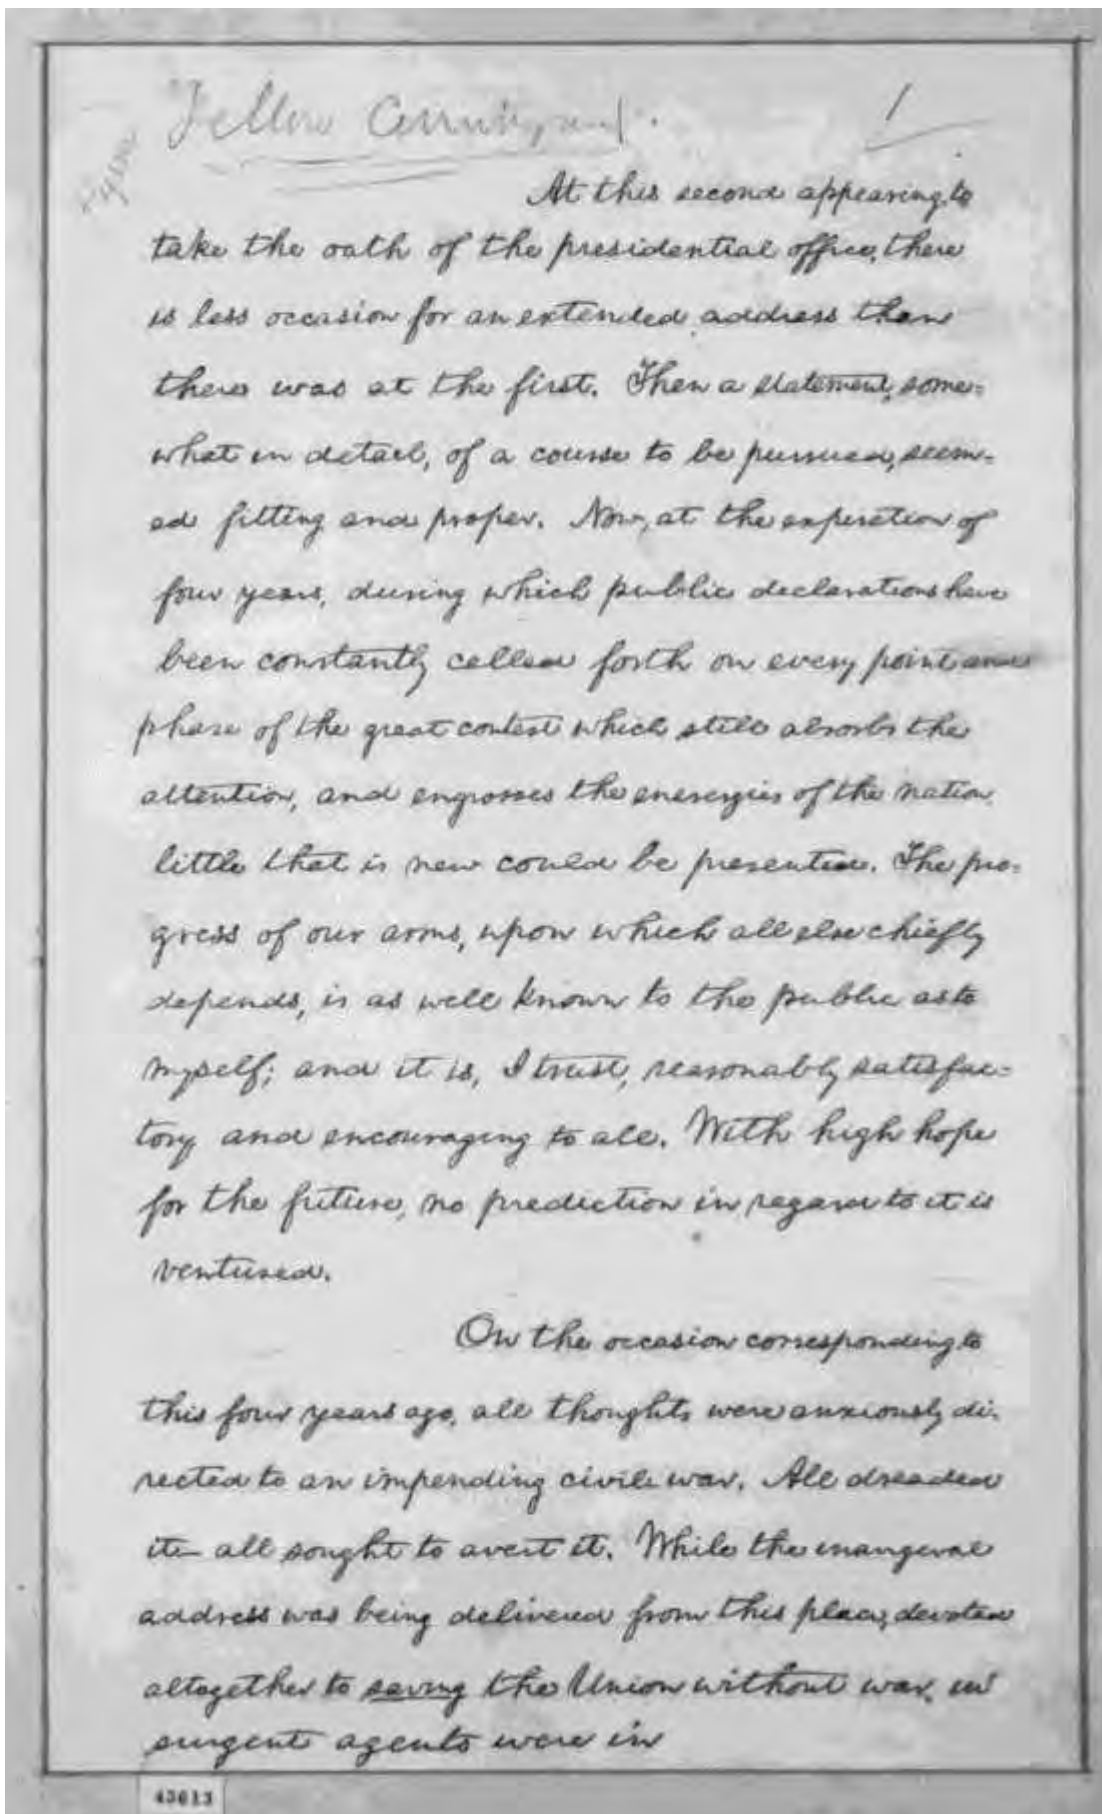 Fellow Countrymen.
1
At this second appearing to
take the oath of the presidential office, there
is less occasion for an extended address than
there was at the first. Then a statement, some-
what in detail, of a course to be pursued, seem-
ed fitting and proper. Now, at the expiration of
four years, during which public declarations have
been constantly called forth on every point and
phase of the great contest which still absorbs the
attention, and engrosses the energies of the nation,
little that is new could be presented. The pro-
gress of our arms, upon which all else chiefly
depends, is as well known to the public as to
myself; and it is, I trust, reasonably satisfac-
tory and encouraging to all. With high hope
for the future, no prediction in regard to it is
ventured.
On the occasion corresponding to
this four years ago, all thoughts were anxiously di-
rected to an impending civil war. All dreaded
it— all sought to avert it. While the inaugeral
address was being delivered from this place, devoted
altogether to saving the Union without war, in
surgent agents were in
43613